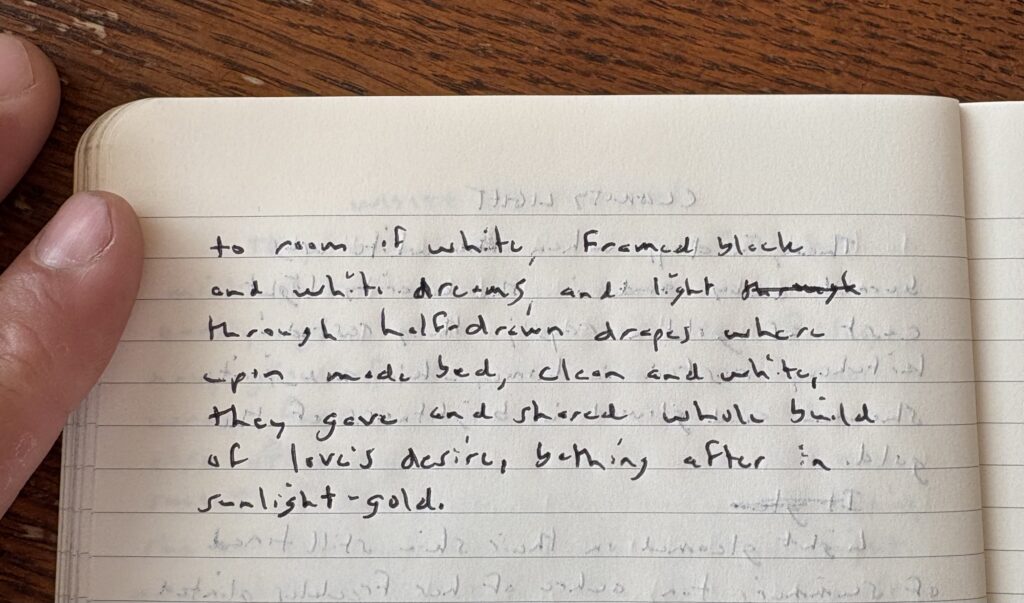 to room of white, framed black
and white dreams, and light through
through half-drawn drapes where
upon made bed, clean and white,
they gave and shared whole build
of love's desire, bathing after in
sunlight-gold.